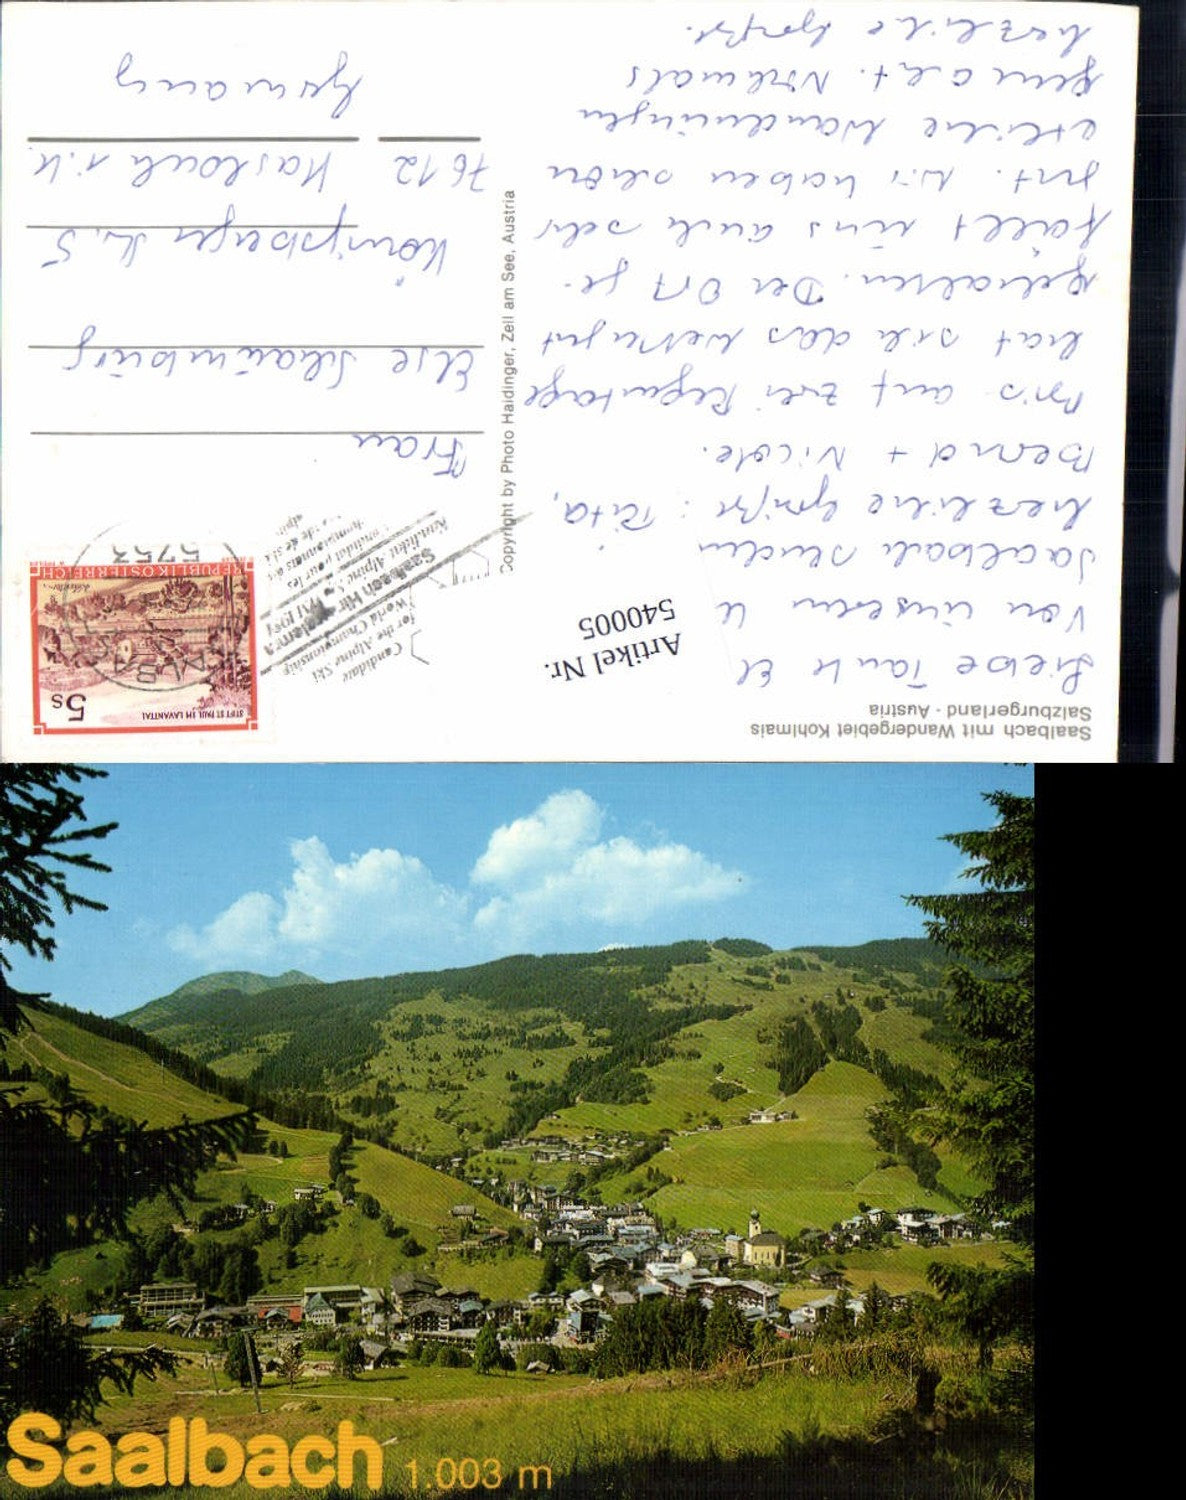 Saalbach mit Wandergebiet Kohlmais
Salzburgerland - Austria
Liebe Tante El
Von unserem U
Saalbach senden
herzliche Grüße: Rita,
Bernd + Nicole.
Bis auf zwei Regentage
hat sich das Wetter gut
gehalten. Der Ort ge-
fällt uns auch sehr
gut. Wir haben schon
etliche Wanderungen
gemacht. Nochmals
herzliche Grüße.
Artikel Nr.
540005
Copyright by Photo Haidinger, Zell am See, Austria
STIFT ST. PAUL IM LAVANTTAL
5s
REPUBLIK ÖSTERREICH
5753
Candidate
for the Alpine Ski
World Championship
Saalbach Hinterglemm
WM 1991
Kandidat Alpine
Frau
Else Schaumburg
Königsberger Str. 5
7612 Haslach i. K.
Germany
Saalbach 1.003 m